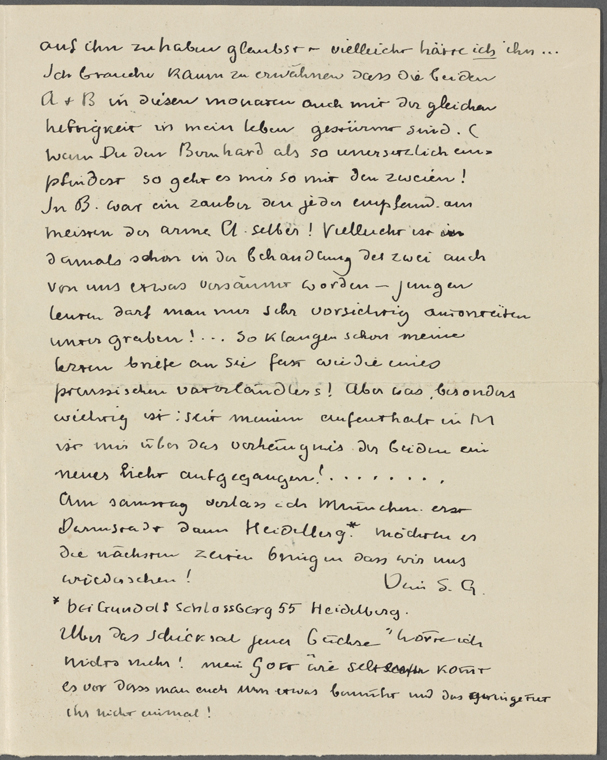 auf ihn zu haben glaubst – vielleicht hätte ich ihn ...
Ich brauche kaum zu erwähnen dass die beiden
A + B in diesen monaten auch mit der gleichen
heftigkeit in mein leben gestürmt sind. (
wenn Du den Bernhard als so unersetzlich em=
pfindest so geht es mir so mit den zweien!
In B. war ein zauber den jeder empfand. am
meisten der arme A. selber! Vielleicht ist
damals schon in der behandlung der zwei auch
von uns etwas versäumt worden – jungen
leuten darf man nur sehr vorsichtig autoritäten
untergraben! ... So klangen schon meine
letzten briefe an Sie fast wie die eines
preussischen vaterlandlers! Aber was besonders
wichtig ist: seit meinem aufenthalt in M
ist mir über das verhängnis der beiden ein
neues licht aufgegangen! . . . . . . . .
Am samstag verlass ich München. erst
Darmstadt dann Heidelberg.* möchten es
die nächsten zeiten bringen dass wir uns
wiedersehen! Dein S. G.
* bei Gundolf Schlossberg 55 Heidelberg.
Über das schicksal jener Büchse hörte ich
nichts mehr! mein Gott wie selten kommt
es vor dass man euch um etwas bemüht und das geringe tut
ihr nicht einmal!